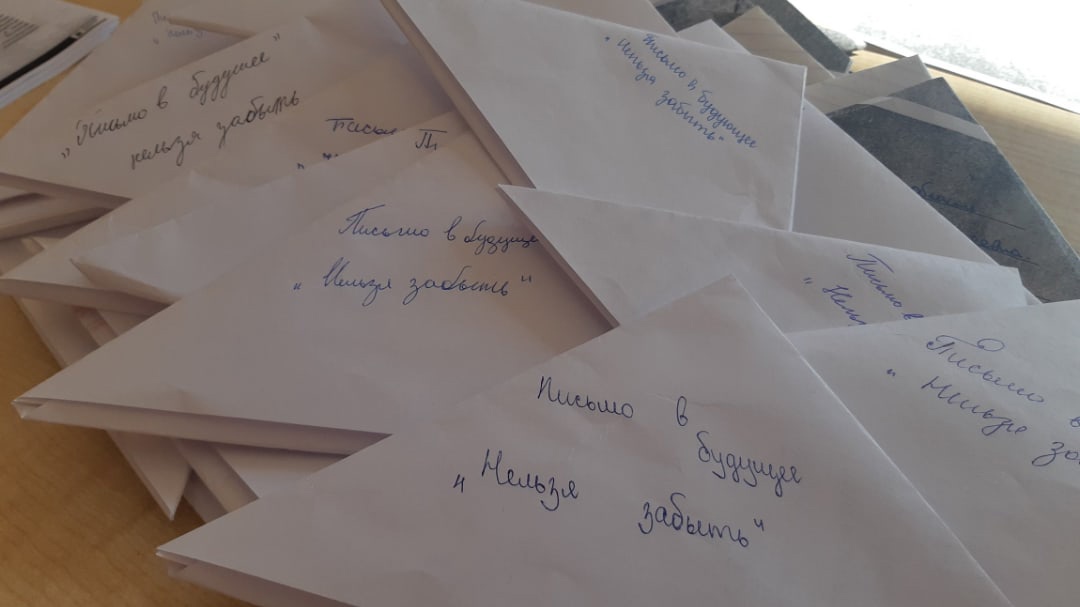 „Письмо в будущее"
нельзя забыть
Письмо в будующее
"Нельзя забыть"
Письмо в будуще
"Нельзя забыть"
Письмо в
"Нель
Письмо в
"Нельзя за
Письмо в
будущее
"Нельзя забыть"